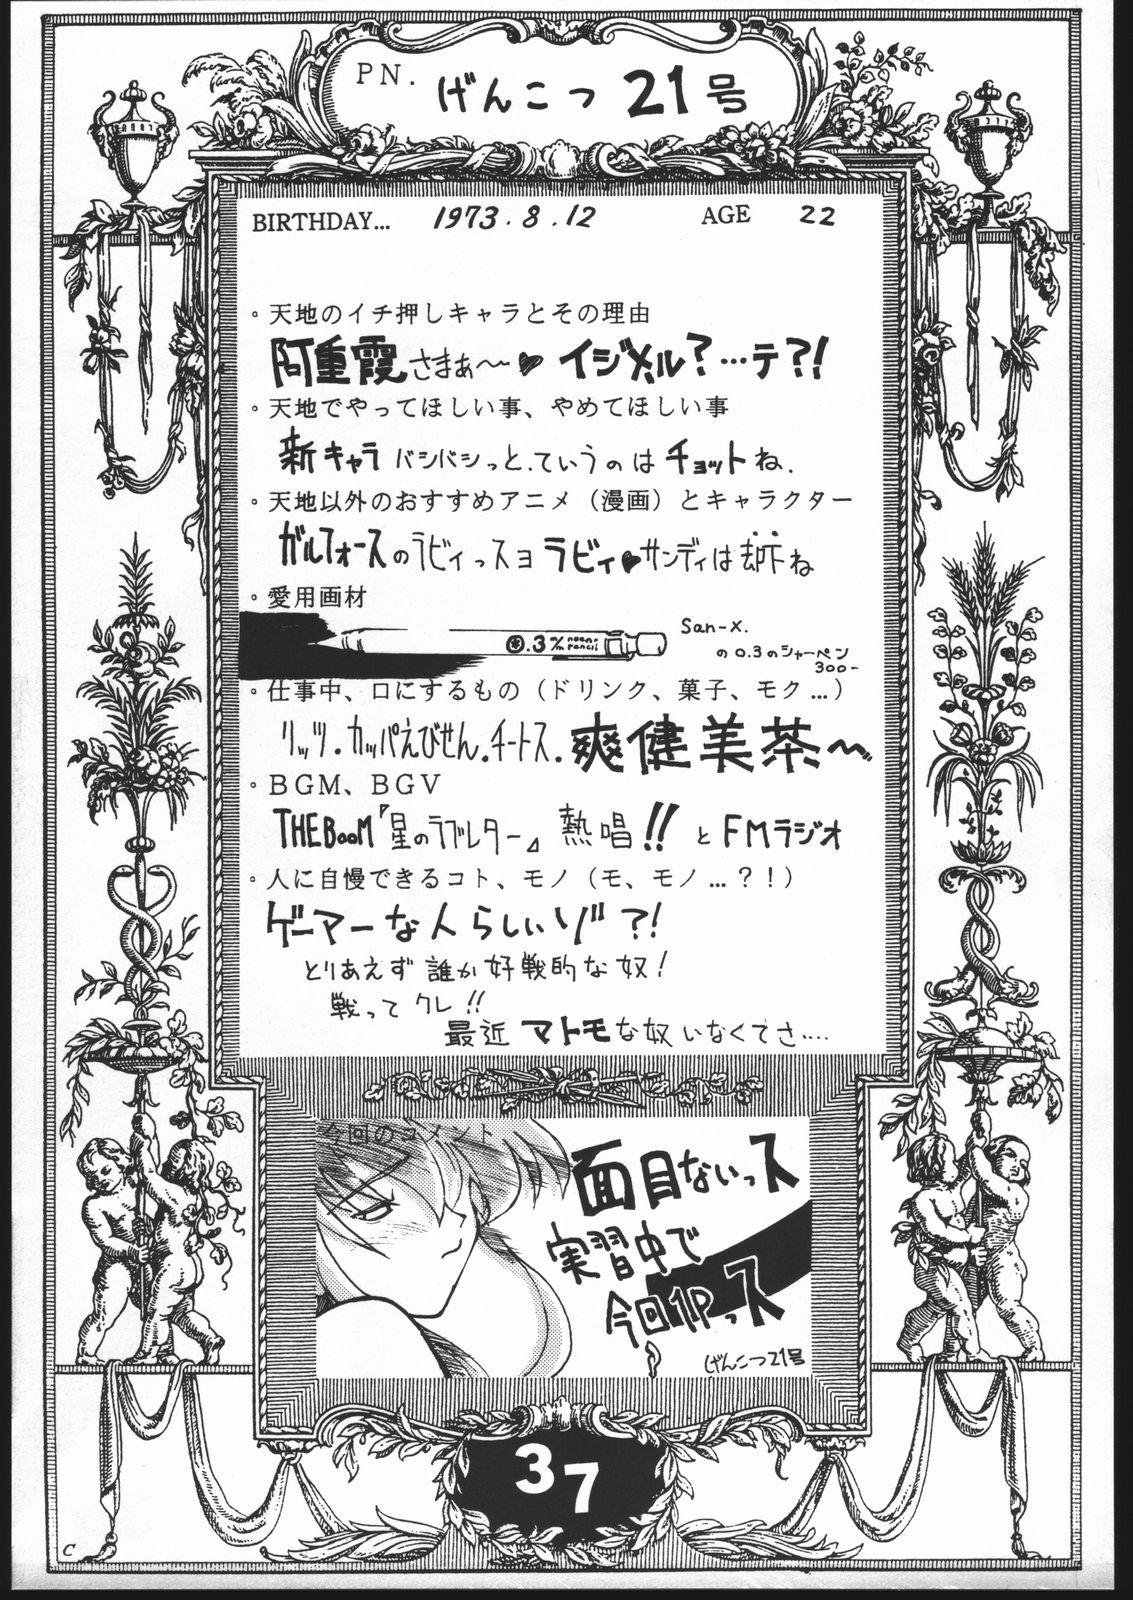 PN. げんこつ 21号
BIRTHDAY... 1973.8.12 AGE 22
。天地のイチ押しキャラとその理由
阿重霞さまぁ〜♥ イジメル？…テ？！
。天地でやってほしい事、やめてほしい事
新キャラ バシバシっと．ていうのは チョットね．
。天地以外のおすすめアニメ（漫画）とキャラクター
ガルフォースのラビィっスヨ ラビィ♥サンディは却下ね
。愛用画材
0.3 m/m neon pencil
San-X.
の0.3のシャーペン
300-
。仕事中、口にするもの（ドリンク、菓子、モク…）
リッツ．カッパえびせん．チートス．爽健美茶〜
。BGM、BGV
THE BooM『星のラブレター』熱唱!! と FMラジオ
。人に自慢できるコト、モノ（モ、モノ…？！）
ゲーマーな人らしいゾ？！
とりあえず 誰か好戦的な奴！
戦って クレ!!
最近 マトモな奴 いなくてさ‥‥
今回のコメント
面目ないっス
実習中で
今回1Pっス
げんこつ21号
37
C